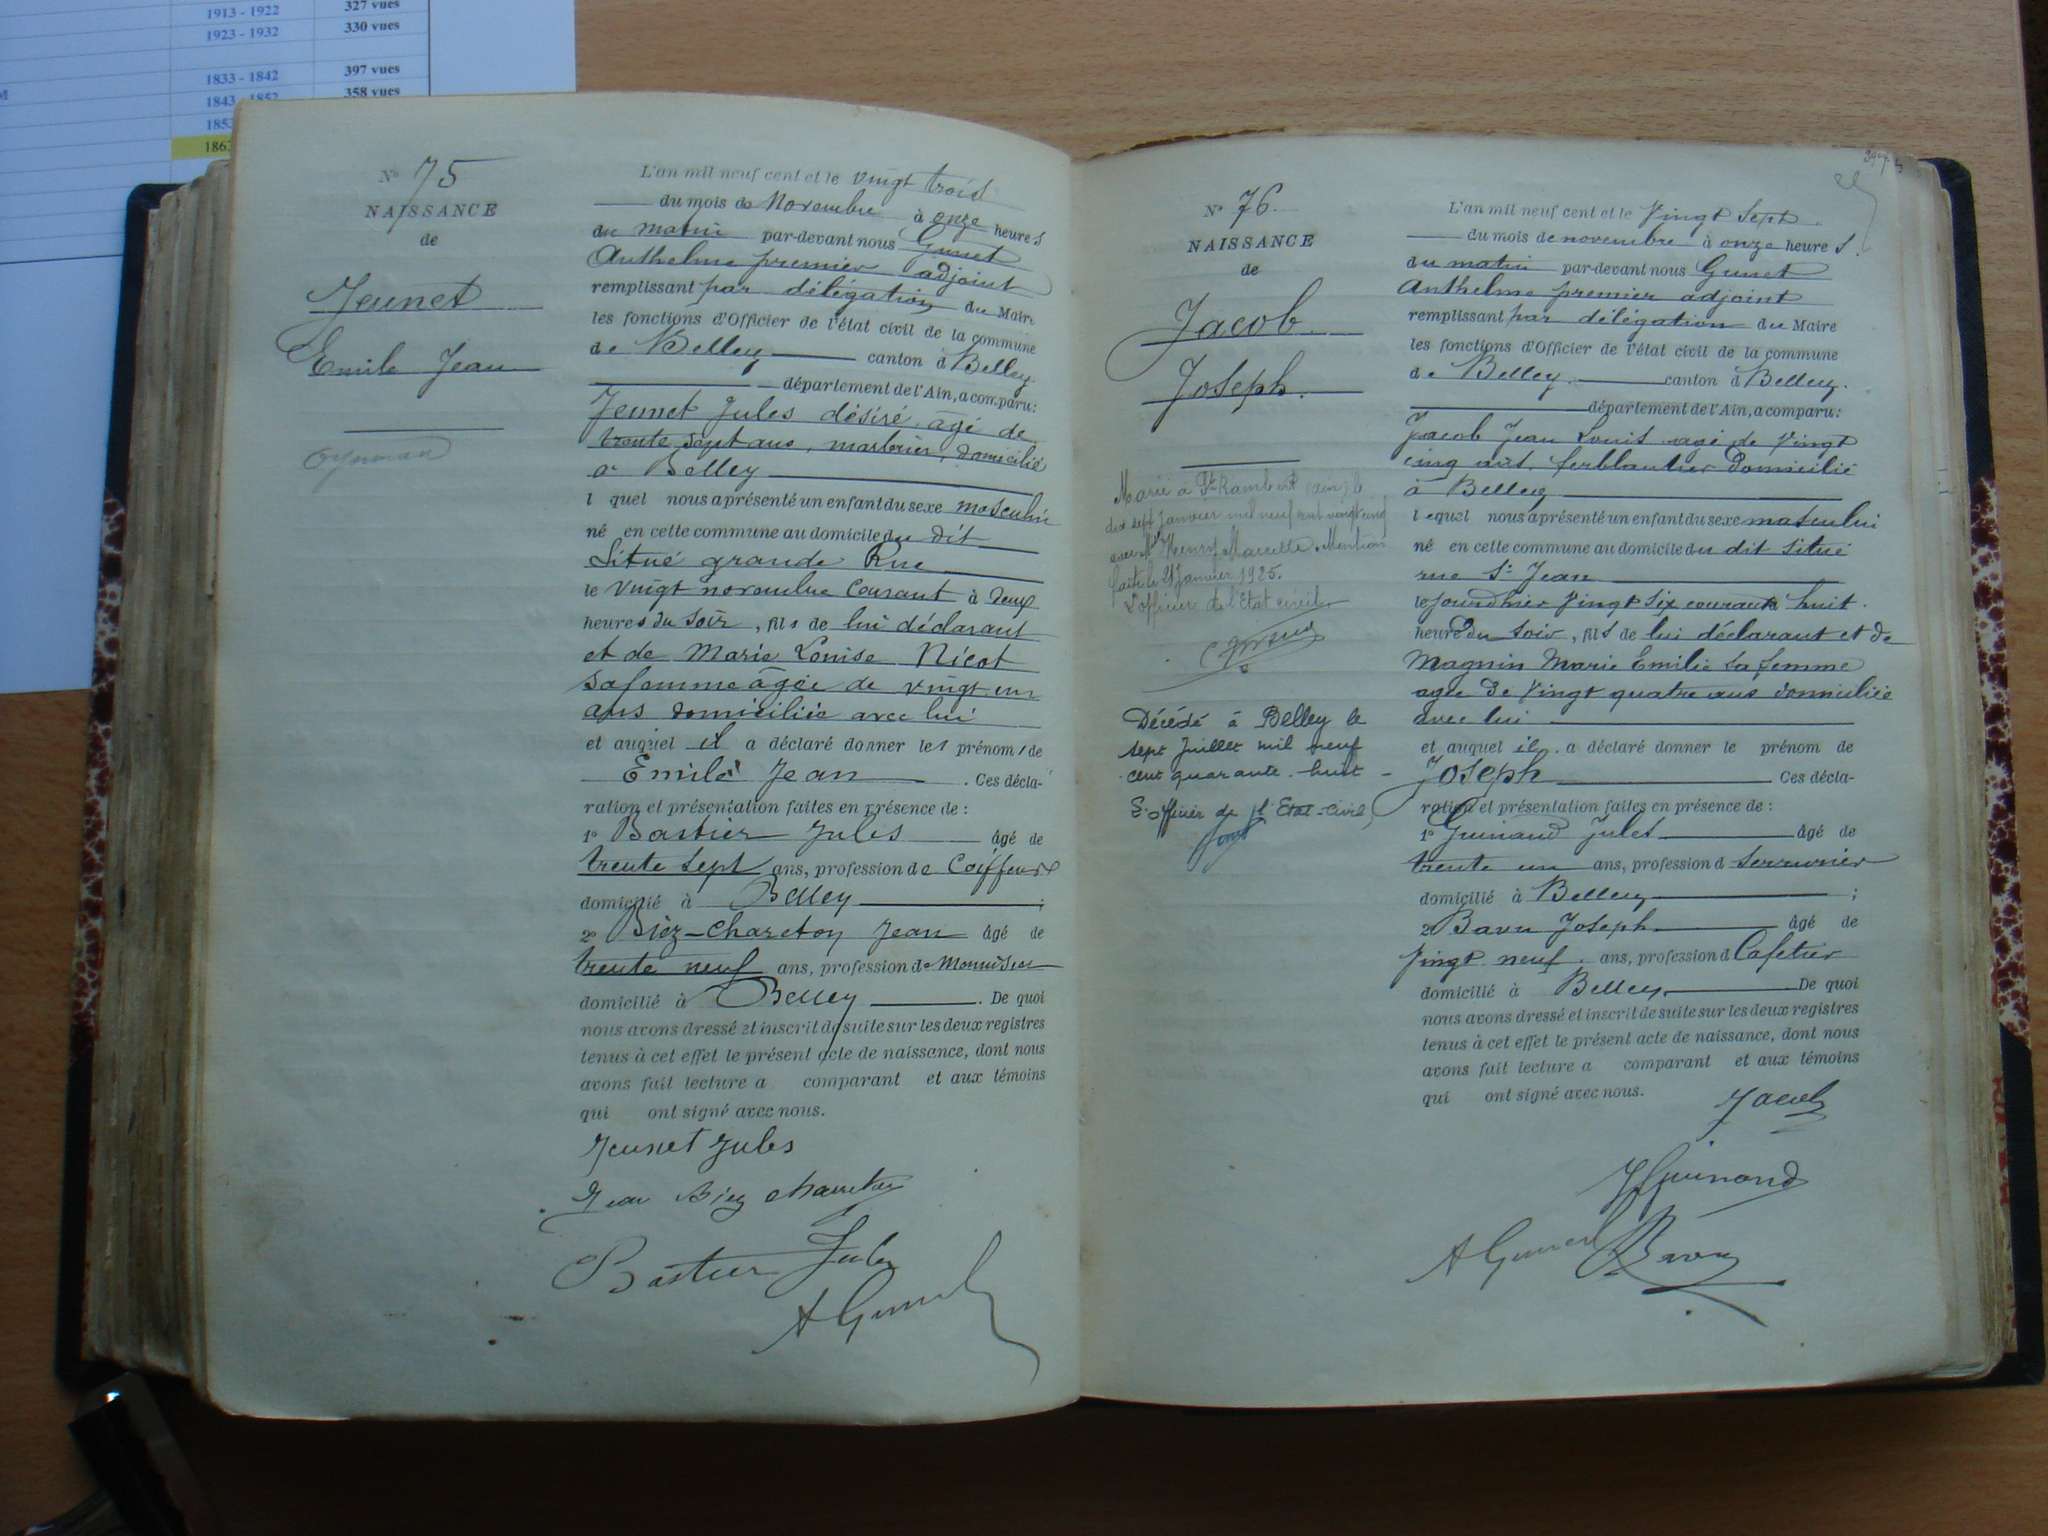 1913 - 1922 327 vues
1923 - 1932 330 vues
1833 - 1842 397 vues
1843 - 1852 358 vues
1853
1863
No 75
NAISSANCE
de
Jeunet
Emile Jean
L'an mil neuf cent et le vingt trois
du mois de Novembre à onze heures
du matin par-devant nous Gunet
Anthelme premier adjoint
remplissant par délégation du Maire
les fonctions d'Officier de l'état civil de la commune
de Belley canton d Belley
département de l'Ain, a comparu:
Jeunet Jules désiré agé de
trente sept ans, marbrier, domicilié
à Belley
l quel nous a présenté un enfant du sexe masculin
né en cette commune au domicile du dit
Situé grande Rue
le vingt novembre Courant à deux
heures du soir, fils de lui déclarant
et de Marie Louise Nicot
sa femme âgée de vingt un
ans domiciliée avec lui
et auquel il a déclaré donner les prénoms de
Emile Jean . Ces décla-
ration et présentation faites en présence de :
1o Bastier Jules âgé de
trente sept ans, profession de Coiffeur
domicilié à Belley ;
2o Biez-Chareton Jean âgé de
trente neuf ans, profession de Menuisier
domicilié à Belley . De quoi
nous avons dressé et inscrit de suite sur les deux registres
tenus à cet effet le présent acte de naissance, dont nous
avons fait lecture a comparant et aux témoins
qui ont signé avec nous.
Jeunet Jules
Jean Biez Charreton
Bastier Jules
A Gunet
No 76
NAISSANCE
de
Jacob
Joseph.
Marié à St Rambert (Ain) le
dix sept Janvier mil neuf cent vingt cinq
avec Henry Marcelle. Mention
faite le 21 Janvier 1925.
L'officier de l'Etat civil
Décédé à Belley le
sept Juillet mil neuf
cent quarante-huit -
L'officier de l'Etat-Civil,
L'an mil neuf cent et le Vingt Sept
du mois de novembre à onze heures
du matin par-devant nous Gunet
Anthelme premier adjoint
remplissant par délégation du Maire
les fonctions d'Officier de l'état civil de la commune
de Belley canton d Belley.
département de l'Ain, a comparu:
Jacob Jean Louis agé de Vingt
cinq ans, ferblantier domicilié
à Belley
lequel nous a présenté un enfant du sexe masculin
né en cette commune au domicile du dit situé
rue St Jean
le vingt six courant huit
heure du soir, fils de lui déclarant et de
Magnin Marie Emilie sa femme
agée de Vingt quatre ans domiciliée
avec lui
et auquel il a déclaré donner le prénom de
Joseph Ces décla-
ration et présentation faites en présence de :
1o Guinand Jules âgé de
trente un ans, profession d serrurier
domicilié à Belley ;
2o Bavu Joseph âgé de
Vingt neuf ans, profession d Cafetier
domicilié à Belley De quoi
nous avons dressé et inscrit de suite sur les deux registres
tenus à cet effet le présent acte de naissance, dont nous
avons fait lecture a comparant et aux témoins
qui ont signé avec nous.
Jacob
J Guinand
A Gunet Bavu